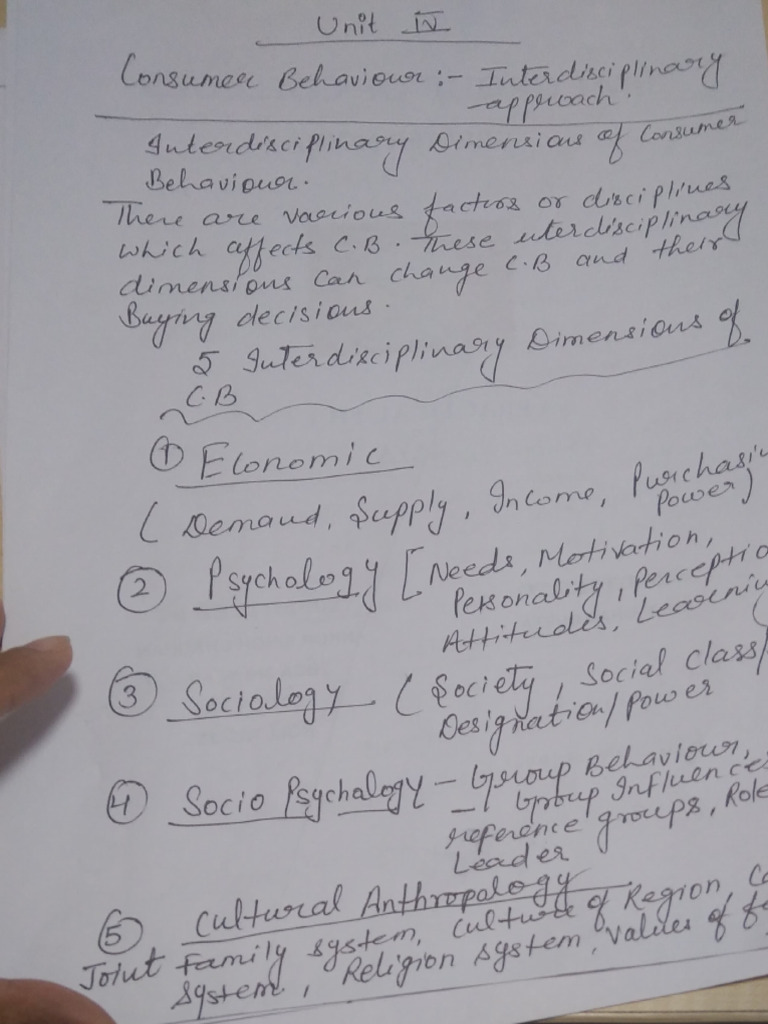 Unit IV
Consumer Behaviour :- Interdisciplinary
approach.
Interdisciplinary Dimensions of Consumer
Behaviour.
There are various factors or disciplines
which affects C.B. These interdisciplinary
dimensions can change C.B and their
Buying decisions.
5 Interdisciplinary Dimensions of
C.B
① Economic
( Demand, Supply, Income, Purchasi
Power)
② Psychology [Needs, Motivation,
Personality, Perceptio
Attitudes, Learnin
③ Sociology ( Society, Social Class/
Designation/Power
④ Socio Psychology - Group Behaviour,
- Group Influences
reference groups, Role
Leader
⑤ Cultural Anthropology
Joint Family system, Culture of Region,
System, Religion system, Values of